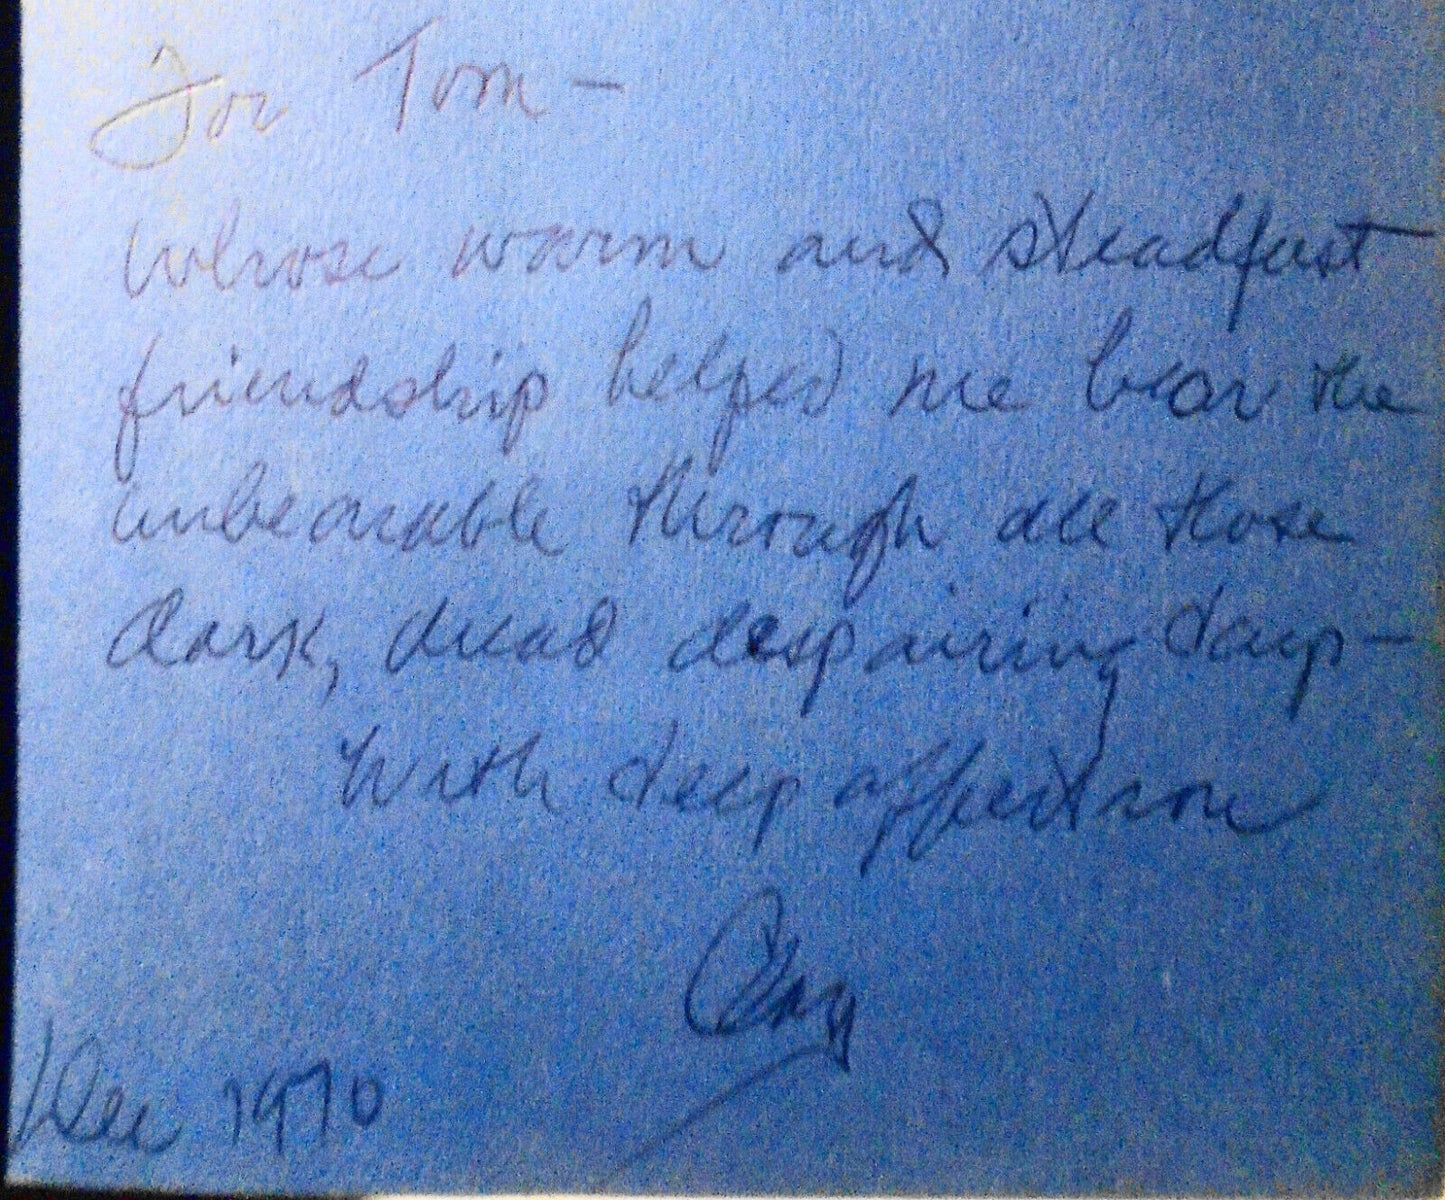 For Tom —
Whose warm and steadfast
friendship helped me bear the
unbearable through all those
dark, dead despairing days —
With deep affection
Dec 1970